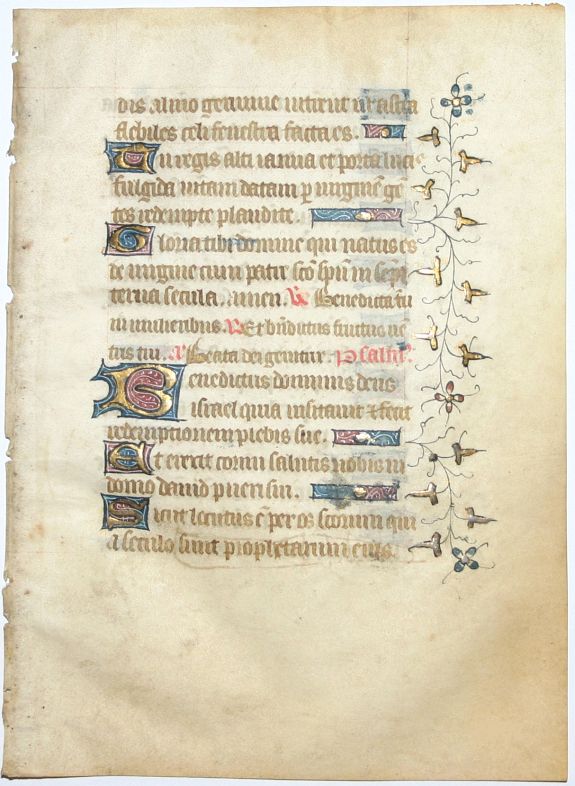 dis almo germine intrent ut astra
flebiles celi fenestra facta es.
Tu regis alti ianua et porta lucis
fulgida uitam datam p uirginē ge
tes redempte plaudite.
Gloria tibi domine qui natus es
de uirgine cum patre sc̄o sp̄u in sempi
terna secula. amen. V̄ Benedicta tu
in mulieribus. R̄ Et b̄n̄dictus fructus ue
tris tui. a Beata dei genitrix. psalm̄.
Benedictus dominus deus
israel quia uisitauit & fecit
redemptionem plebis sue.
Et erexit cornu salutis nobis in
domo dauid pueri sui.
Sicut locutus ē per os sctorum qui
a seculo sunt prophetarum eius.